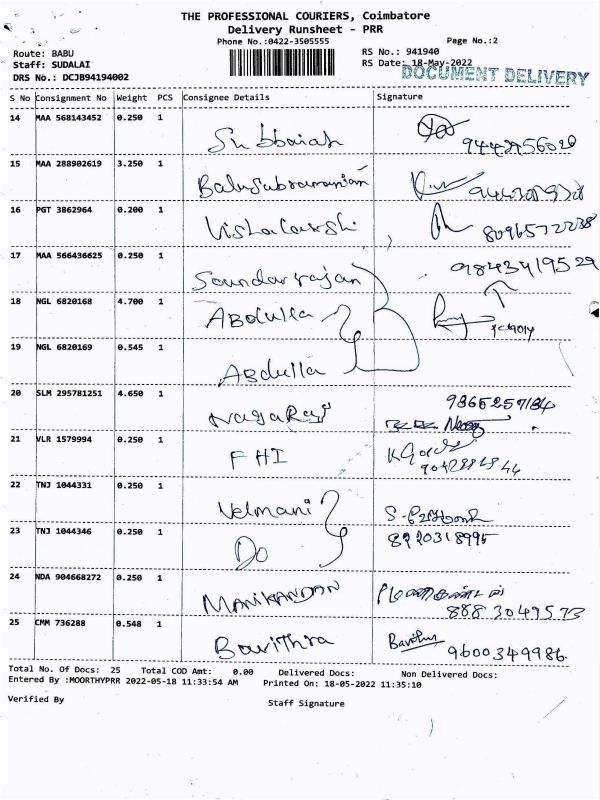 THE PROFESSIONAL COURIERS, Coimbatore
Delivery Runsheet - PRR
Phone No.:0422-3505555
Page No.:2
Route: BABU
RS No.: 941940
Staff: SUDALAI
RS Date: 18-May-2022
DOCUMENT DELIVERY
DRS No.: DCJB94194002
S No Consignment No Weight PCS Consignee Details Signature
14 MAA 568143452 0.250 1 Subbaiah
15 MAA 288902619 3.250 1 Balasubramaniam
16 PGT 3862964 0.200 1 8096572238
17 MAA 566436625 0.250 1 Soundarrajan 9843419529
18 NGL 6820168 4.700 1 Abdulla
19 NGL 6820169 0.545 1 Abdulla
20 SLM 295781251 4.650 1 Nagaraj 9865257184
21 VLR 1579994 0.250 1 FHI
22 TNJ 1044331 0.250 1 Velmani
23 TNJ 1044346 0.250 1 Do 8920318995
24 NDA 904668272 0.250 1 MANIKANDAN 8883049573
25 CMM 736288 0.548 1 Bavithra 9600349986
Total No. Of Docs: 25 Total COD Amt: 0.00 Delivered Docs: Non Delivered Docs:
Entered By :MOORTHYPRR 2022-05-18 11:33:54 AM Printed On: 18-05-2022 11:35:10
Verified By
Staff Signature